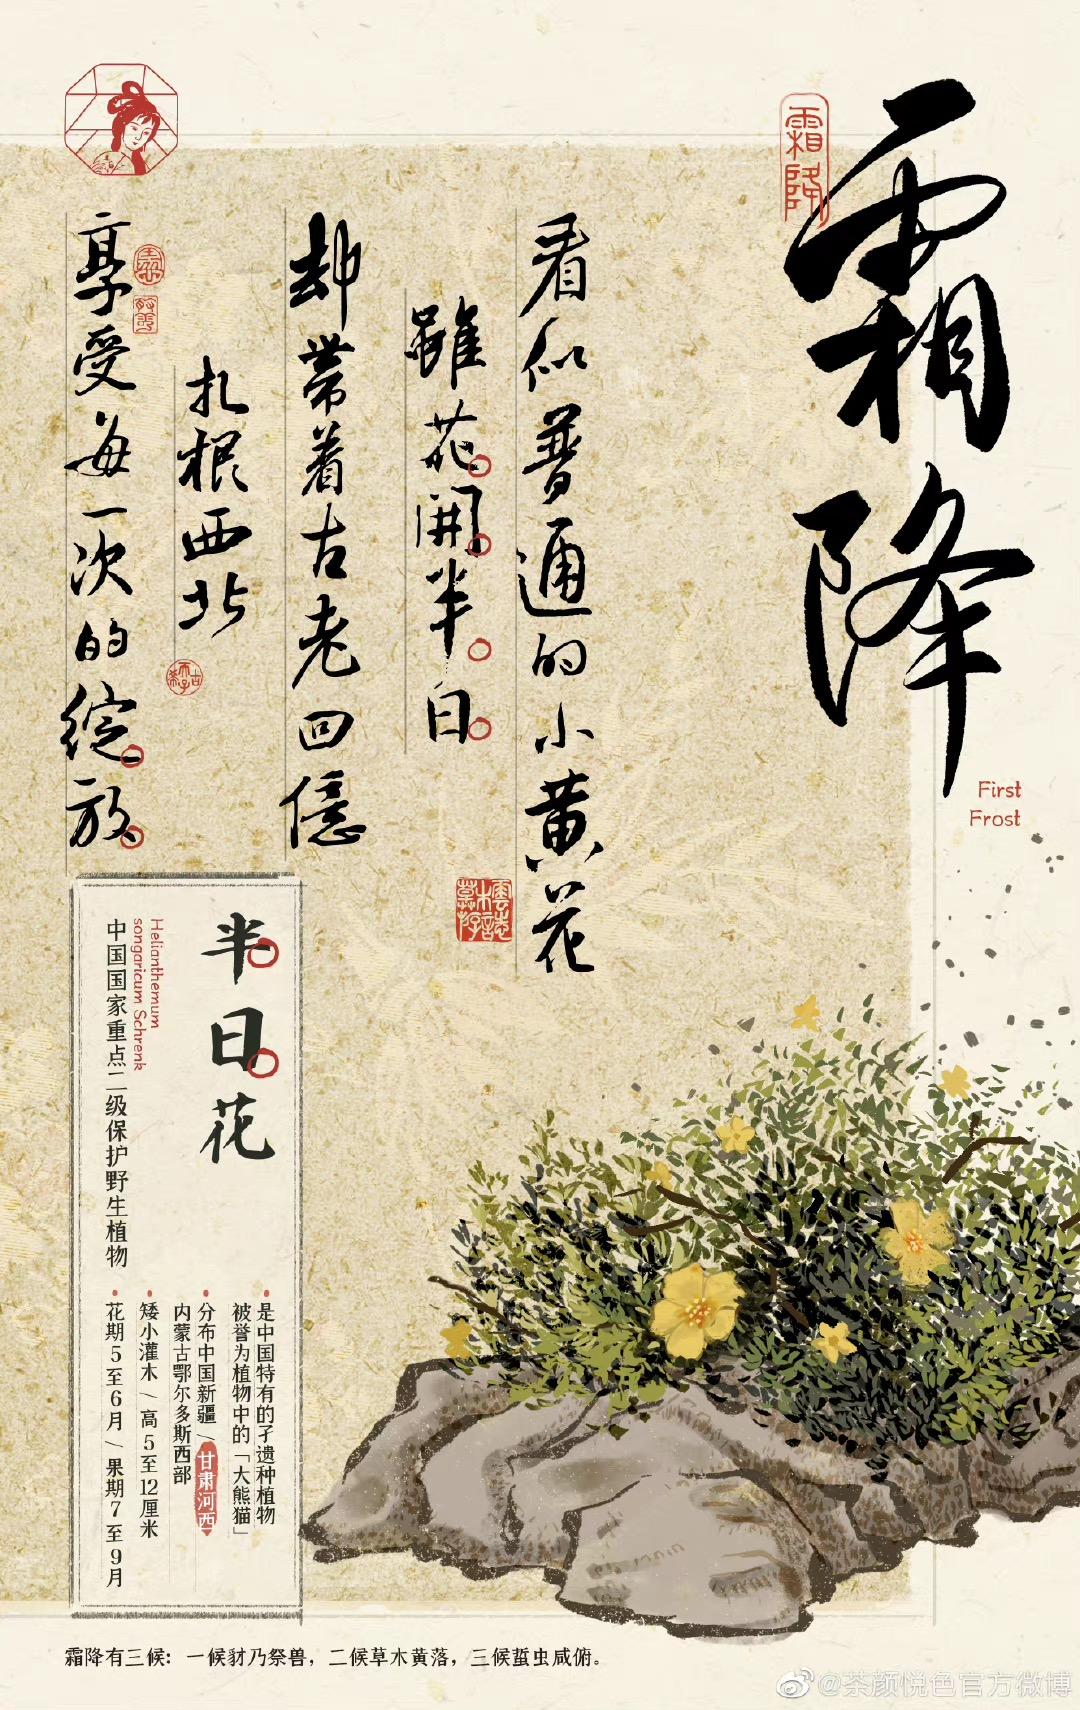 霜降
霜降
First
Frost
看似普通的小黄花
雖花開半日
却带着古老回憶
扎根西北
享受每一次的綻放
半日花
Helianthemum
songaricum Schrenk
中国国家重点二级保护野生植物
是中国特有的孑遗种植物
被誉为植物中的「大熊猫」
分布中国新疆/甘肃河西
内蒙古鄂尔多斯西部
矮小灌木/高5至12厘米
花期5至6月/果期7至9月
霜降有三候：一候豺乃祭兽，二候草木黄落，三候蜇虫咸俯。
@茶颜悦色官方微博